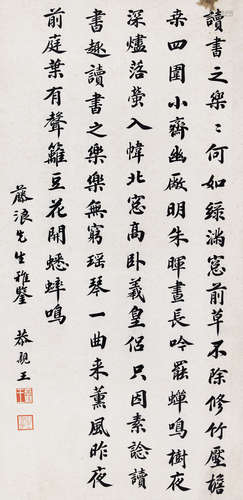 讀書之樂〻何如綠滿窓前草不除修竹壓檐
桒四圍小齋幽厰明朱暉晝長吟罷蟬鳴樹夜
深燼落螢入幃北窓高卧羲皇侣只因素諗讀
書趣讀書之樂樂無窮瑶琴一曲来薰風昨夜
前庭葉有聲籬豆花開蟋蟀鳴
藤浪先生雅鑒
恭親王